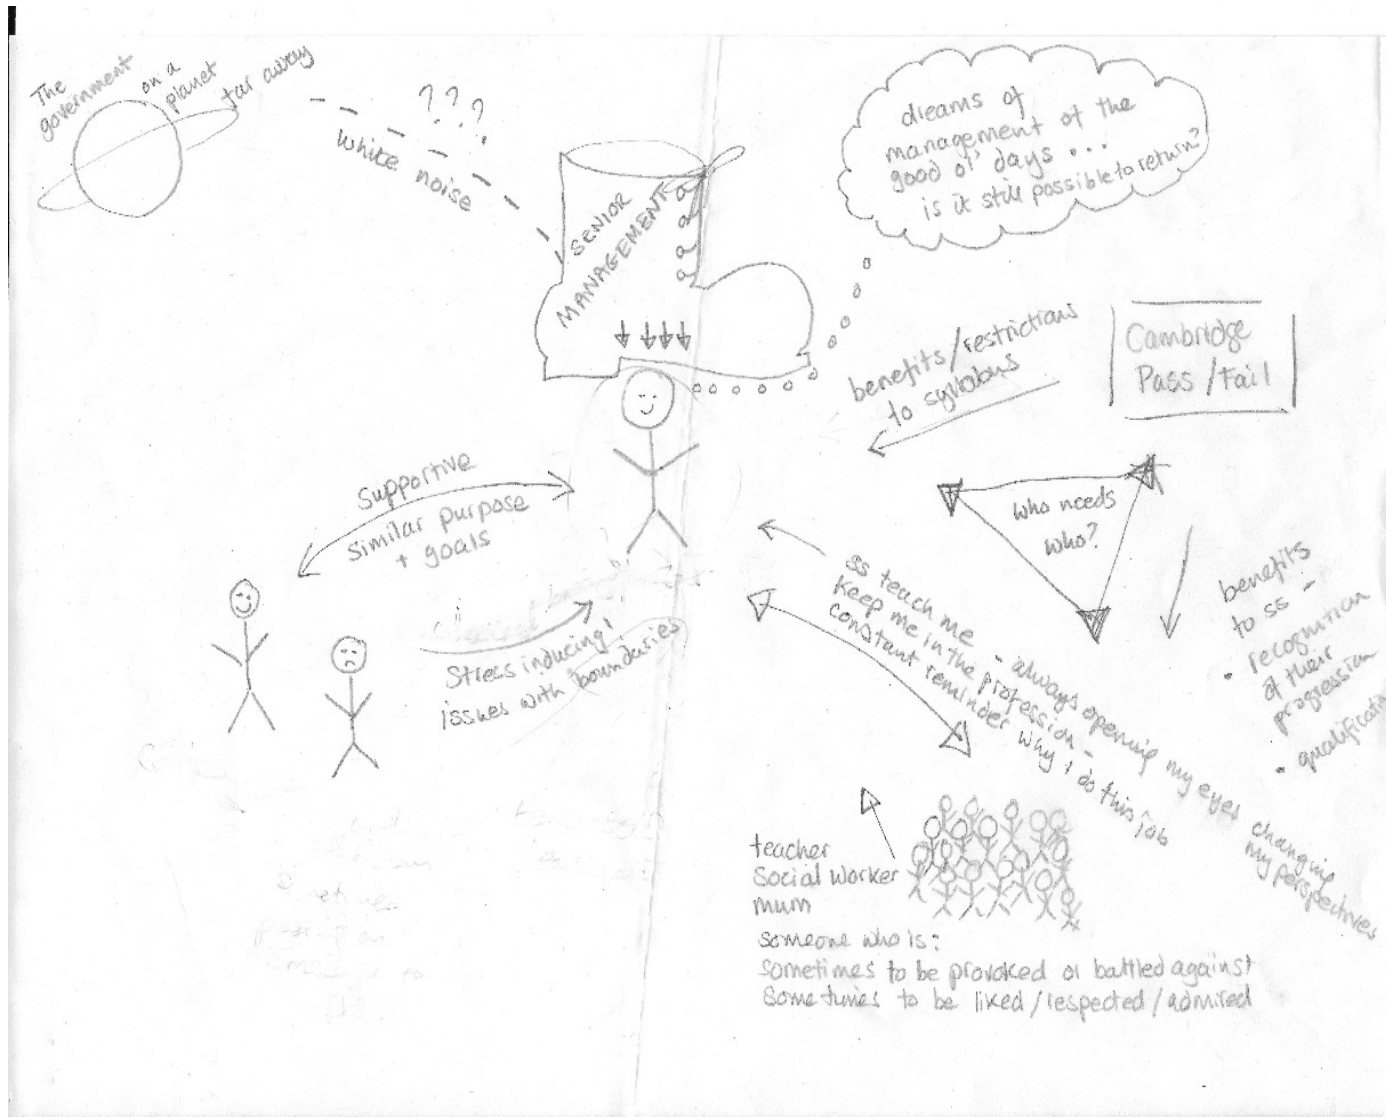 The
government
on a
planet
far away
???
white noise
SENIOR
MANAGEMENT
dreams of
management of the
good ol' days...
is it still possible to return?
benefits/restrictions
to syllabus
Cambridge
Pass/Fail
who needs
who?
benefits
to ss -
• recognition
of their
progression
•
Supportive
Similar purpose
+ goals
Stress inducing!
issues with boundaries
ss teach me - always opening my eyes changing
my perspectives
Keep me in the profession -
constant reminder why i do this job
teacher
Social Worker
mum
someone who is:
sometimes to be provoked or battled against
Sometimes to be liked/respected/admired